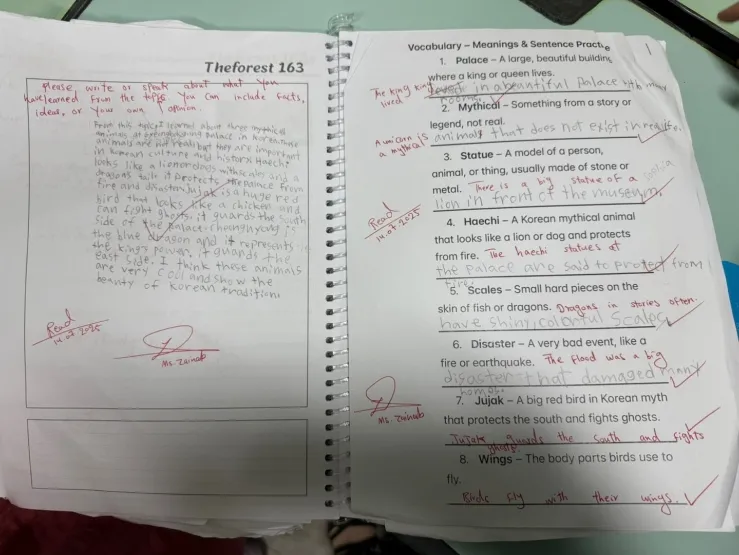 Theforest 163
Please write or speak about what you
have learned from the topic You can include facts,
ideas, or your own opinion.
From this topic I learned about three mythical
animals at palace in Korea
animals are not real but they are important
in Korean culture and history Haechi
looks like a lion or dog with scales and a
dragons tail it protects the palace from
fire and disaster Jujak is a huge red
bird that looks like a chicken and
can fight ghosts. it guards the south
side of the palace. cheongnyong is
the blue dragon and it represents
the king's power. it guards the
east side. I think these animals
are very cool and show the
beauty of Korean tradition.
Read
14.07.2025
Ms. Zainab
Vocabulary – Meanings & Sentence Practice
1. Palace – A large, beautiful building
where a king or queen lives.
The king
lived in a beautiful Palace with many
rooms.
2. Mythical – Something from a story or
legend, not real.
A unicorn is
a mythical animals that does not exist in reality.
3. Statue – A model of a person,
animal, or thing, usually made of stone or
metal. There is a big statue of a
lion in front of the museum.
Read
14.07.2025
4. Haechi – A Korean mythical animal
that looks like a lion or dog and protects
from fire. The haechi statues at
the palace are said to protect from
fire.
5. Scales – Small hard pieces on the
skin of fish or dragons. Dragons in stories often
have shiny, colorful Scales
6. Disaster – A very bad event, like a
fire or earthquake. The flood was a big
disaster that damaged many
homes.
7. Jujak – A big red bird in Korean myth
that protects the south and fights ghosts.
Jujak guards the South and fights
ghosts.
Ms. Zainab
8. Wings – The body parts birds use to
fly.
Birds fly with their wings.